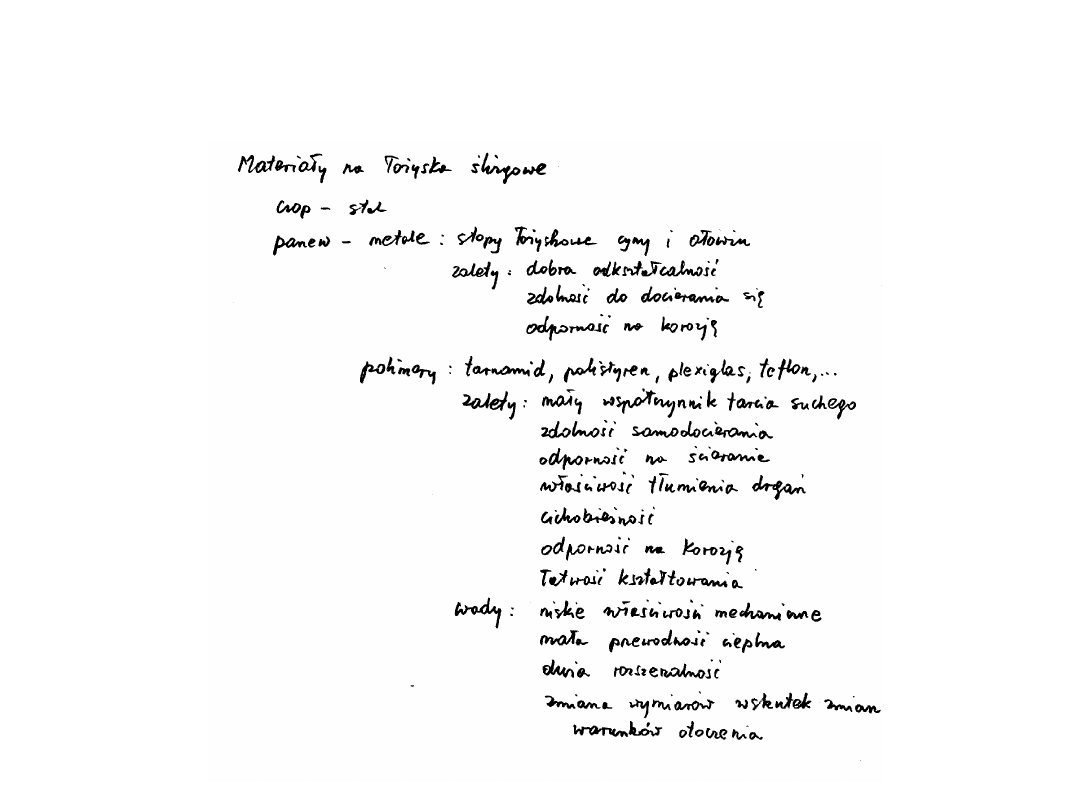 Materiały na łożyska ślizgowe
czop - stal
panew - metale : stopy łożyskowe cyny i ołowiu
zalety : dobra odkształcalność
zdolność do docierania się
odporność na korozję
polimery : tarnamid, polistyren, plexiglas, teflon,...
zalety : mały współczynnik tarcia suchego
zdolność samodocierania
odporność na ścieranie
właściwość tłumienia drgań
cichobieżność
odporność na korozję
łatwość kształtowania
wady : niskie właściwości mechaniczne
mała przewodność cieplna
duża rozszerzalność
zmiana wymiarów wskutek zmian
warunków otoczenia